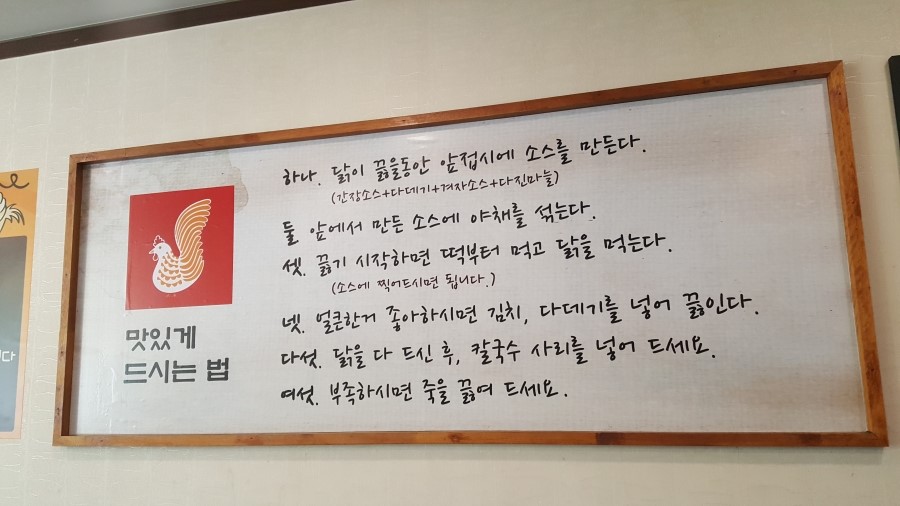 맛있게
드시는 법
하나. 닭이 끓을동안 앞접시에 소스를 만든다.
(간장소스+다데기+겨자소스+다진마늘)
둘 앞에서 만든 소스에 야채를 섞는다.
셋. 끓기 시작하면 떡부터 먹고 닭을 먹는다.
(소스에 찍어드시면 됩니다.)
넷. 얼큰한거 좋아하시면 김치, 다데기를 넣어 끓인다.
다섯. 닭을 다 드신 후, 칼국수 사리를 넣어 드세요.
여섯. 부족하시면 죽을 끓여 드세요.